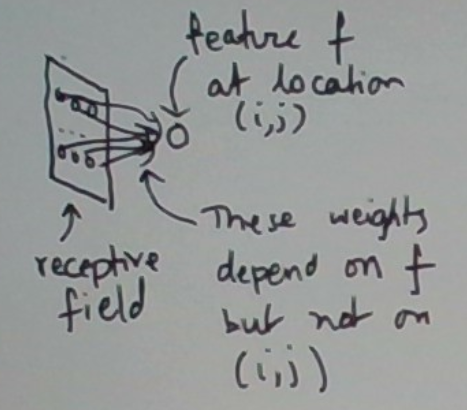 feature f
at location
(i,j)
receptive
field
These weights
depend on f
but not on
(i,j)